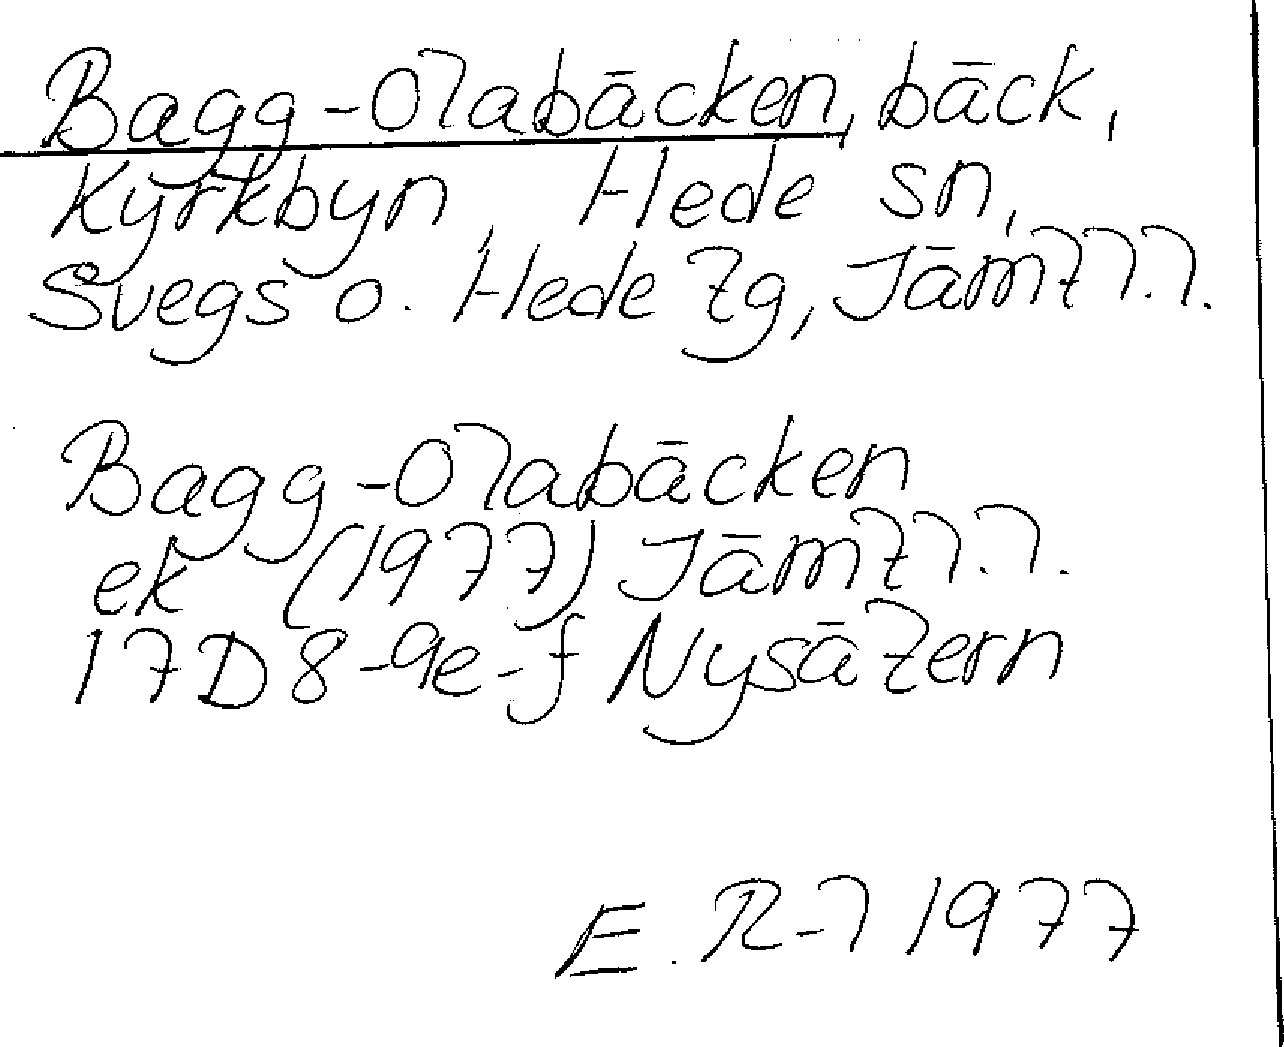 Bagg-Olabäcken, bäck,
Kyrkbyn, Hede sn,
Svegs o. Hede tg, Jämtl.l.
Bagg-Olabäcken
ek (1977) Jämtl.l.
17D 8-9e-f Nysätern
E. R-l 1977